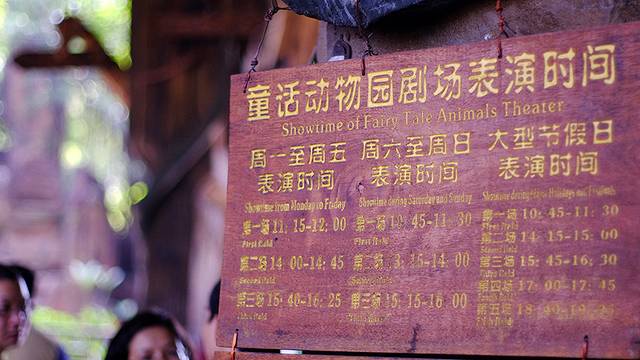 童话动物园剧场表演时间
Showtime of Fairy Tale Animals Theater
周一至周五
表演时间
Showtime from Monday to Friday
第一场 11: 15-12: 00
First field
第二场 14 00-14: 45
Second field
第三场 15: 40-16: 25
Third field
周六至周日
表演时间
Showtime during Saturday and Sunday
第一场 10 45-11 30
First field
第二场 3: 15-14 00
第三场 15: 15-16 00
大型节假日
表演时间
Showtime during Major Holidays and Festivals
第一场 10: 45-11: 30
First field
第二场 14 15-15: 00
Second field
第三场 15: 45-16; 30
Third field
第四场 17: 00-17: 45
第五场 18: 40-19: 25
Fifth field